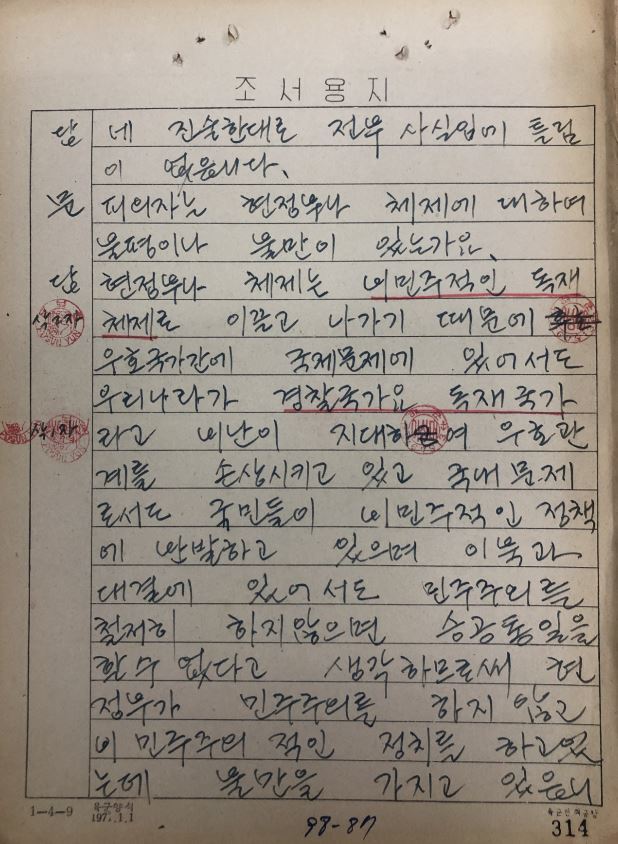 조서용지
답 네 진술한대로 전부 사실임에 틀림
이 없읍니다.
문 피의자는 현정부나 체제에 대하여
불평이나 불만이 있는가요.
답 현정부나 체제는 비민주적인 독재
체제로 이끌고 나가기 때문에
우호국가간에 국제문제에 있어서도
우리나라가 경찰국가요 독재국가
라고 비난이 지대하여 우호관
계를 손상시키고 있고 국내문제
로서도 국민들이 비민주적인 정책
에 반발하고 있으며 이북과
대결에 있어서도 민주주의를
철저히 하지않으면 승공통일을
할수 없다고 생각하므로써 현
정부가 민주주의를 하지 않고
비민주주의적인 정치를 하고있
는데 불만을 가지고 있읍니
1-4-9 육군양식
1.1
98-87
314